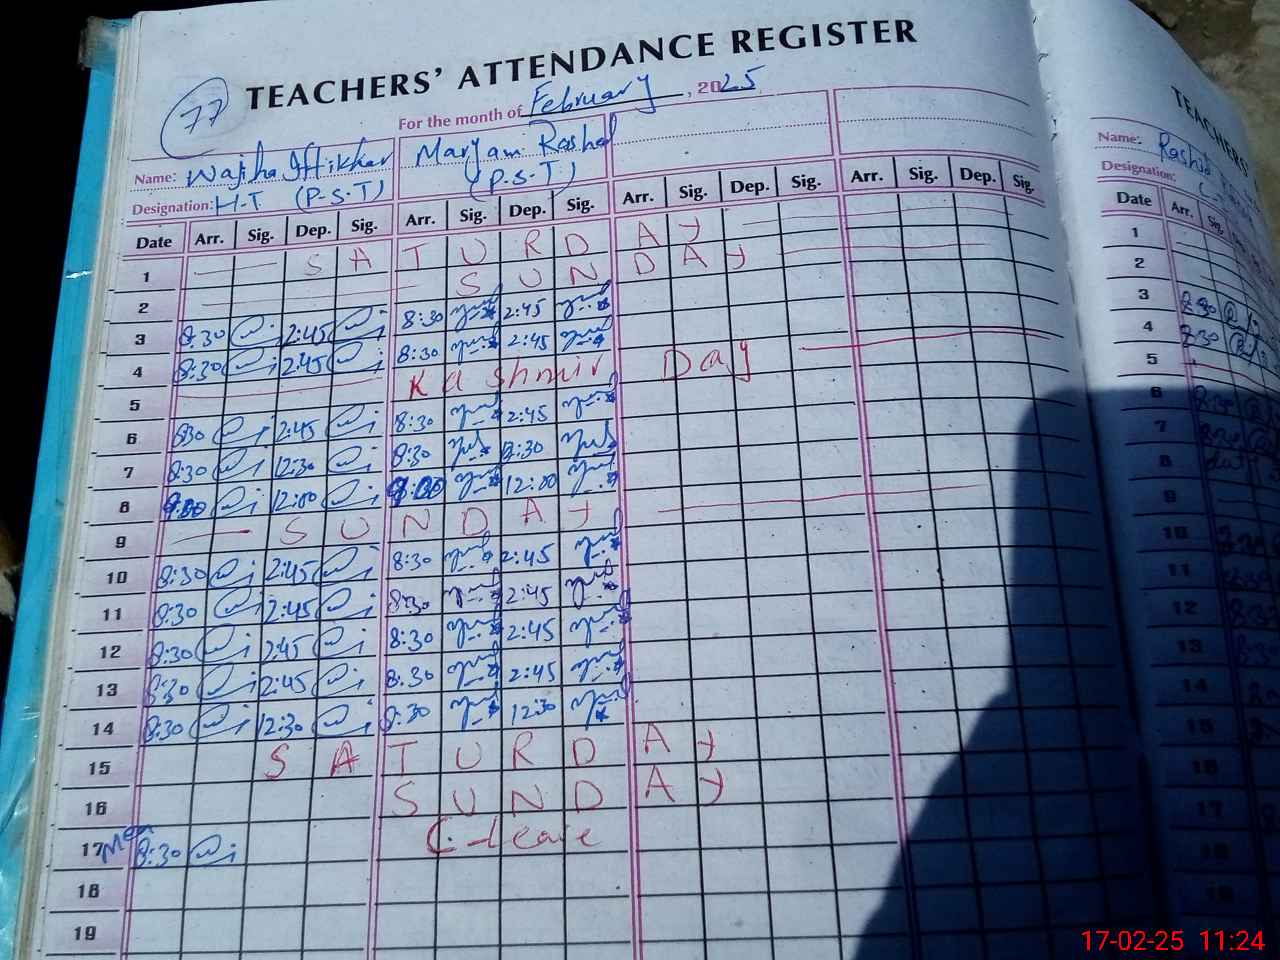 77
TEACHERS' ATTENDANCE REGISTER
For the month of February, 2025
Name: Wajiha Iftikhar Maryam Rashid
Designation: H-T (P-S-T) (P.S.T)
Date Arr. Sig. Dep. Sig. Arr. Sig. Dep. Sig. Arr. Sig. Dep. Sig. Arr. Sig. Dep. Sig.
1 SATURDAY
2 SUNDAY
3 8:30 2:45 8:30 2:45
4 8:30 2:45 8:30 2:45
5 Kashmir Day
6 8:30 2:45 8:30 2:45
7 8:30 12:30 8:30 12:30
8 9:00 12:00 9:00 12:00
9 SUNDAY
10 8:30 2:45 8:30 2:45
11 8:30 2:45 8:30 2:45
12 8:30 2:45 8:30 2:45
13 8:30 2:45 8:30 2:45
14 8:30 12:30 8:30 12:30
15 SATURDAY
16 SUNDAY
17 Mon 8:30 C-leave
18
19
TEACHERS'
Name:
Designation:
Date Arr. Sig.
1
2
3 8:30
4 8:30
5
6 8:30
7 8:30
8
9
10
11
12
13
14
15
17-02-25 11:24